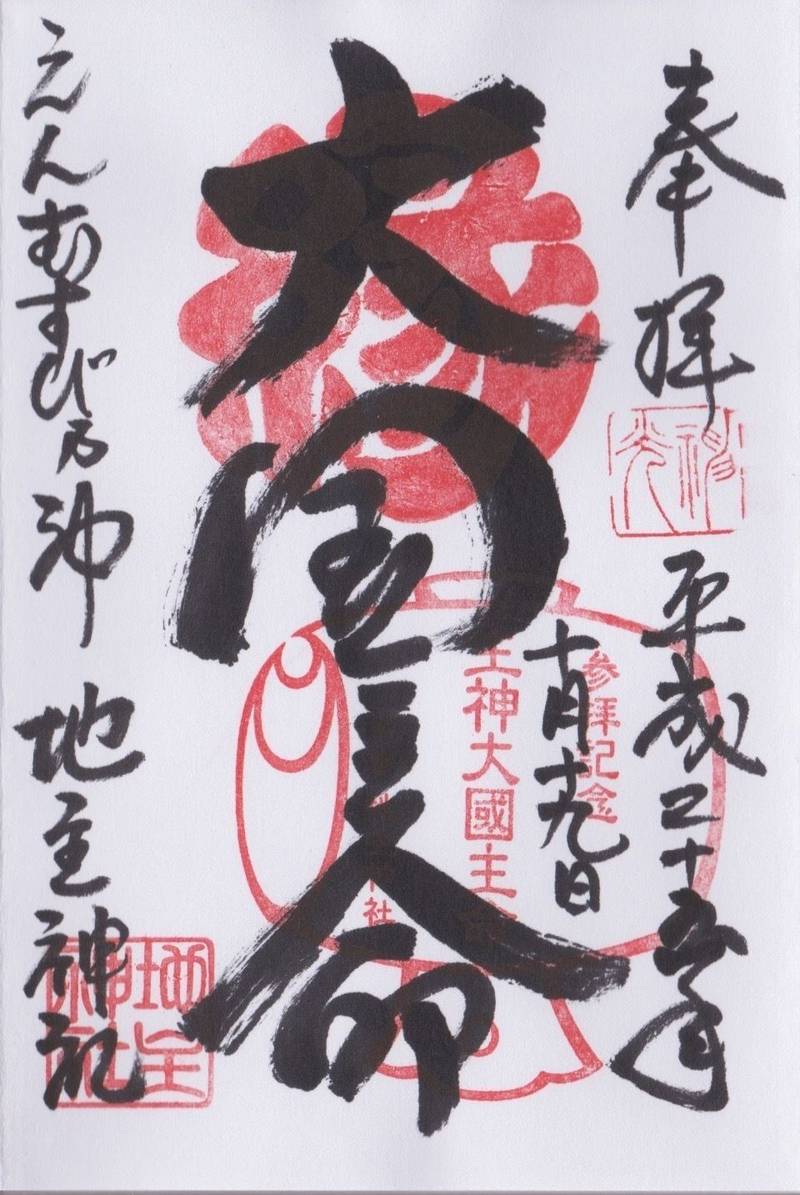 奉拝
平成二十五年
十月十九日
大国主命
えんむすびの神 地主神社
参拝記念
主神大國主命
地主神社